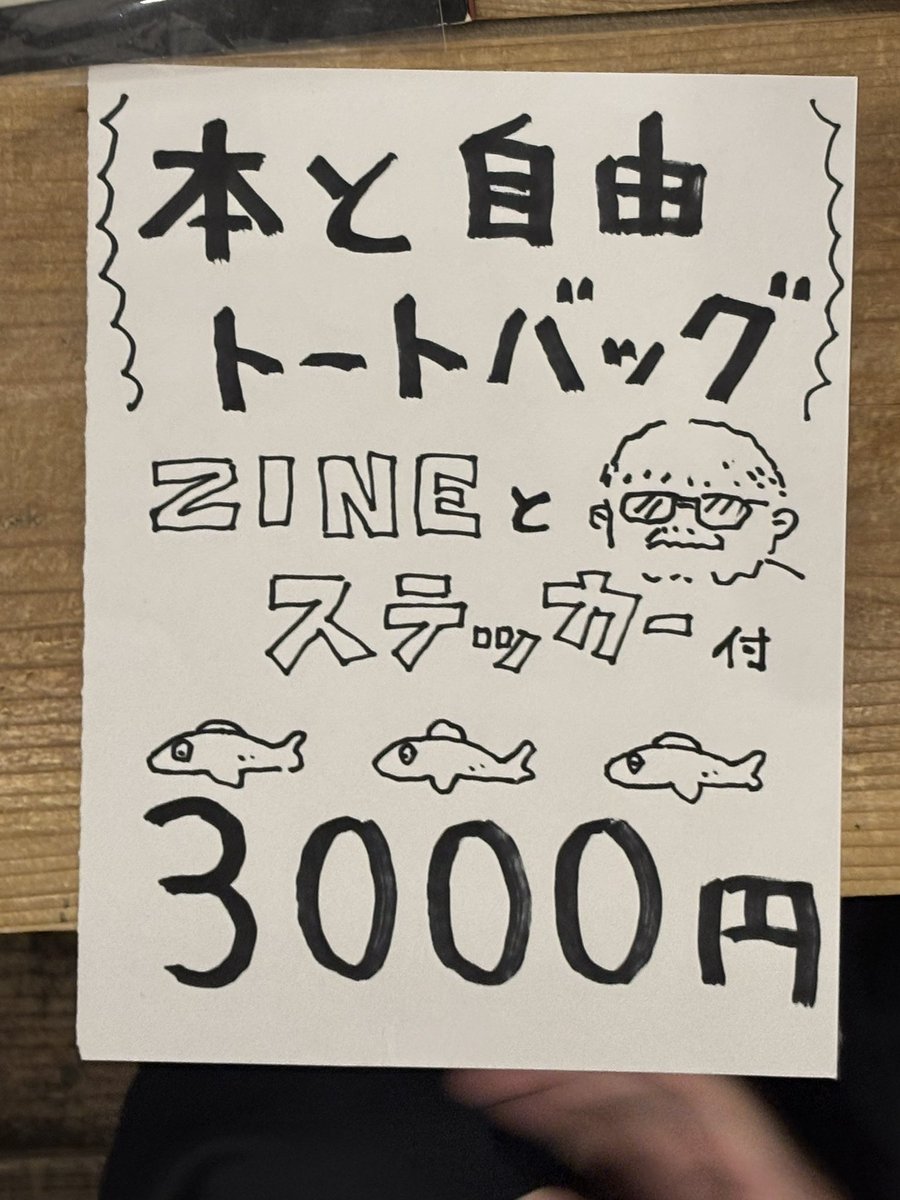 本と自由
トートバッグ
ZINEと
ステッカー付
3000円